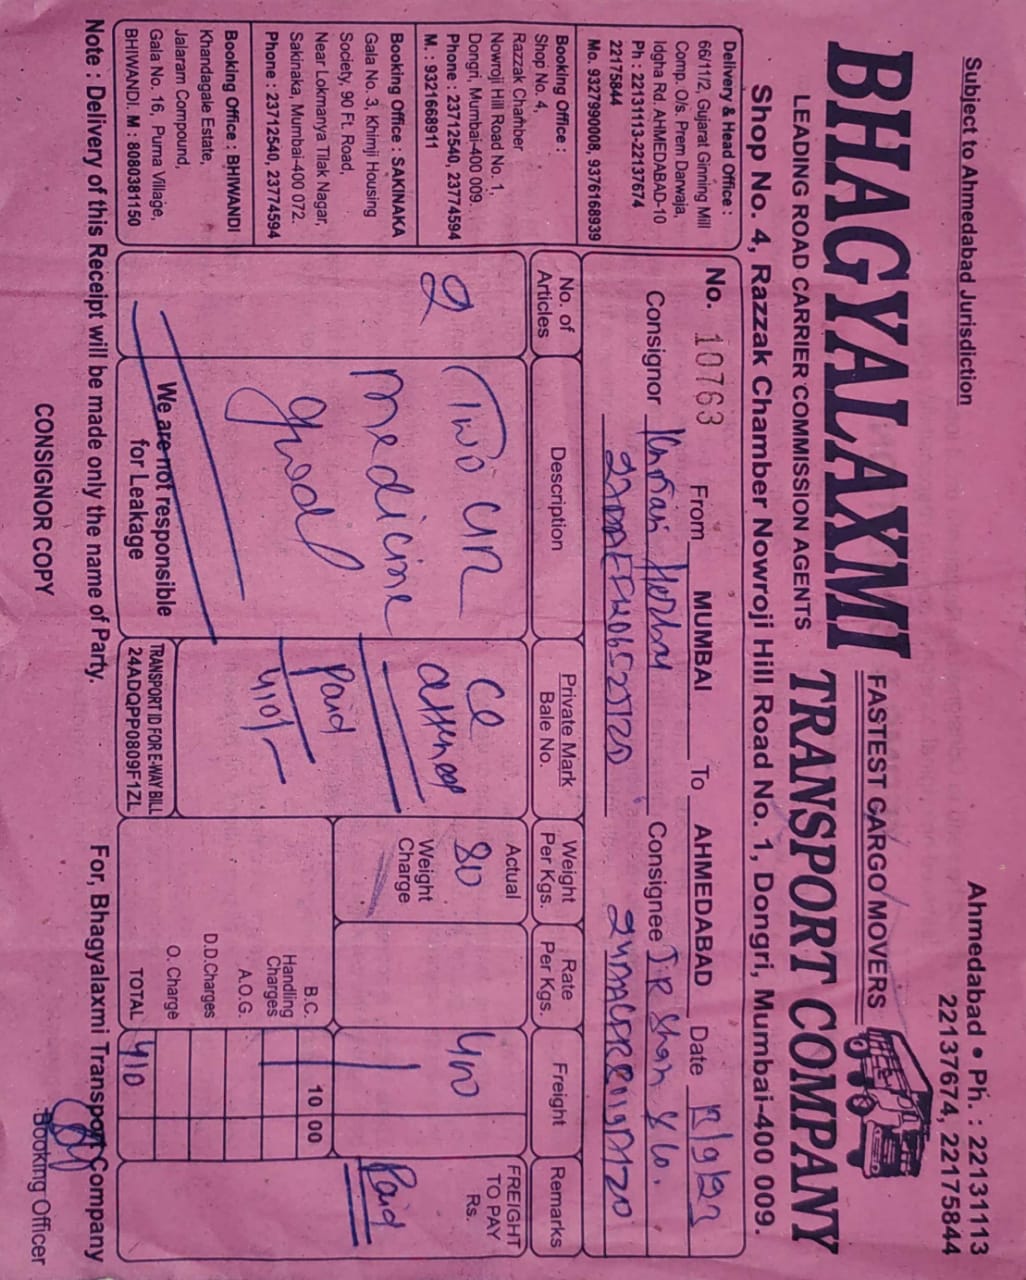 Subject to Ahmedabad Jurisdiction
Ahmedabad • Ph. : 22131113
22137674, 22175844
BHAGYALAXMI
FASTEST CARGO MOVERS
TRANSPORT COMPANY
LEADING ROAD CARRIER COMMISSION AGENTS
Shop No. 4, Razzak Chamber Nowroji Hill Road No. 1, Dongri, Mumbai-400 009.
Delivery & Head Office :
66/11/2, Gujarat Ginning Mill
Comp. O/s. Prem Darwaja,
Idgha Rd. AHMEDABAD-10
Ph : 22131113-22137674
22175844
Mo. 9327990008, 9376168939
Booking Office :
Shop No. 4,
Razzak Chamber
Nowroji Hill Road No. 1,
Dongri, Mumbai-400 009.
Phone : 23712540, 23774594
M. : 9321668911
Booking Office : SAKINAKA
Gala No. 3, Khimji Housing
Society, 90 Ft. Road,
Near Lokmanya Tilak Nagar,
Sakinaka, Mumbai-400 072.
Phone : 23712540, 23774594
Booking Office : BHIWANDI
Khandagale Estate,
Jalaram Compound,
Gala No. 16, Purna Village,
BHIWANDI. M : 8080381150
No. 10763 From MUMBAI To AHMEDABAD Date
Consignor Consignee Shah & Co.
No. of Articles
Description
Private Mark
Bale No.
Weight Per Kgs.
Rate Per Kgs.
Freight
Remarks
2
Two
medicine
good
We are not responsible
for Leakage
Paid
410/-
TRANSPORT ID FOR E-WAY BILL
24ADQPP0809F1ZL
Actual
80
Weight
Charge
400
FREIGHT
TO PAY
Rs.
Paid
B.C. 10 00
Handling
Charges
A.O.G.
D.D.Charges
O. Charge
TOTAL 410
Note : Delivery of this Receipt will be made only the name of Party.
For, Bhagyalaxmi Transport Company
CONSIGNOR COPY
Booking Officer